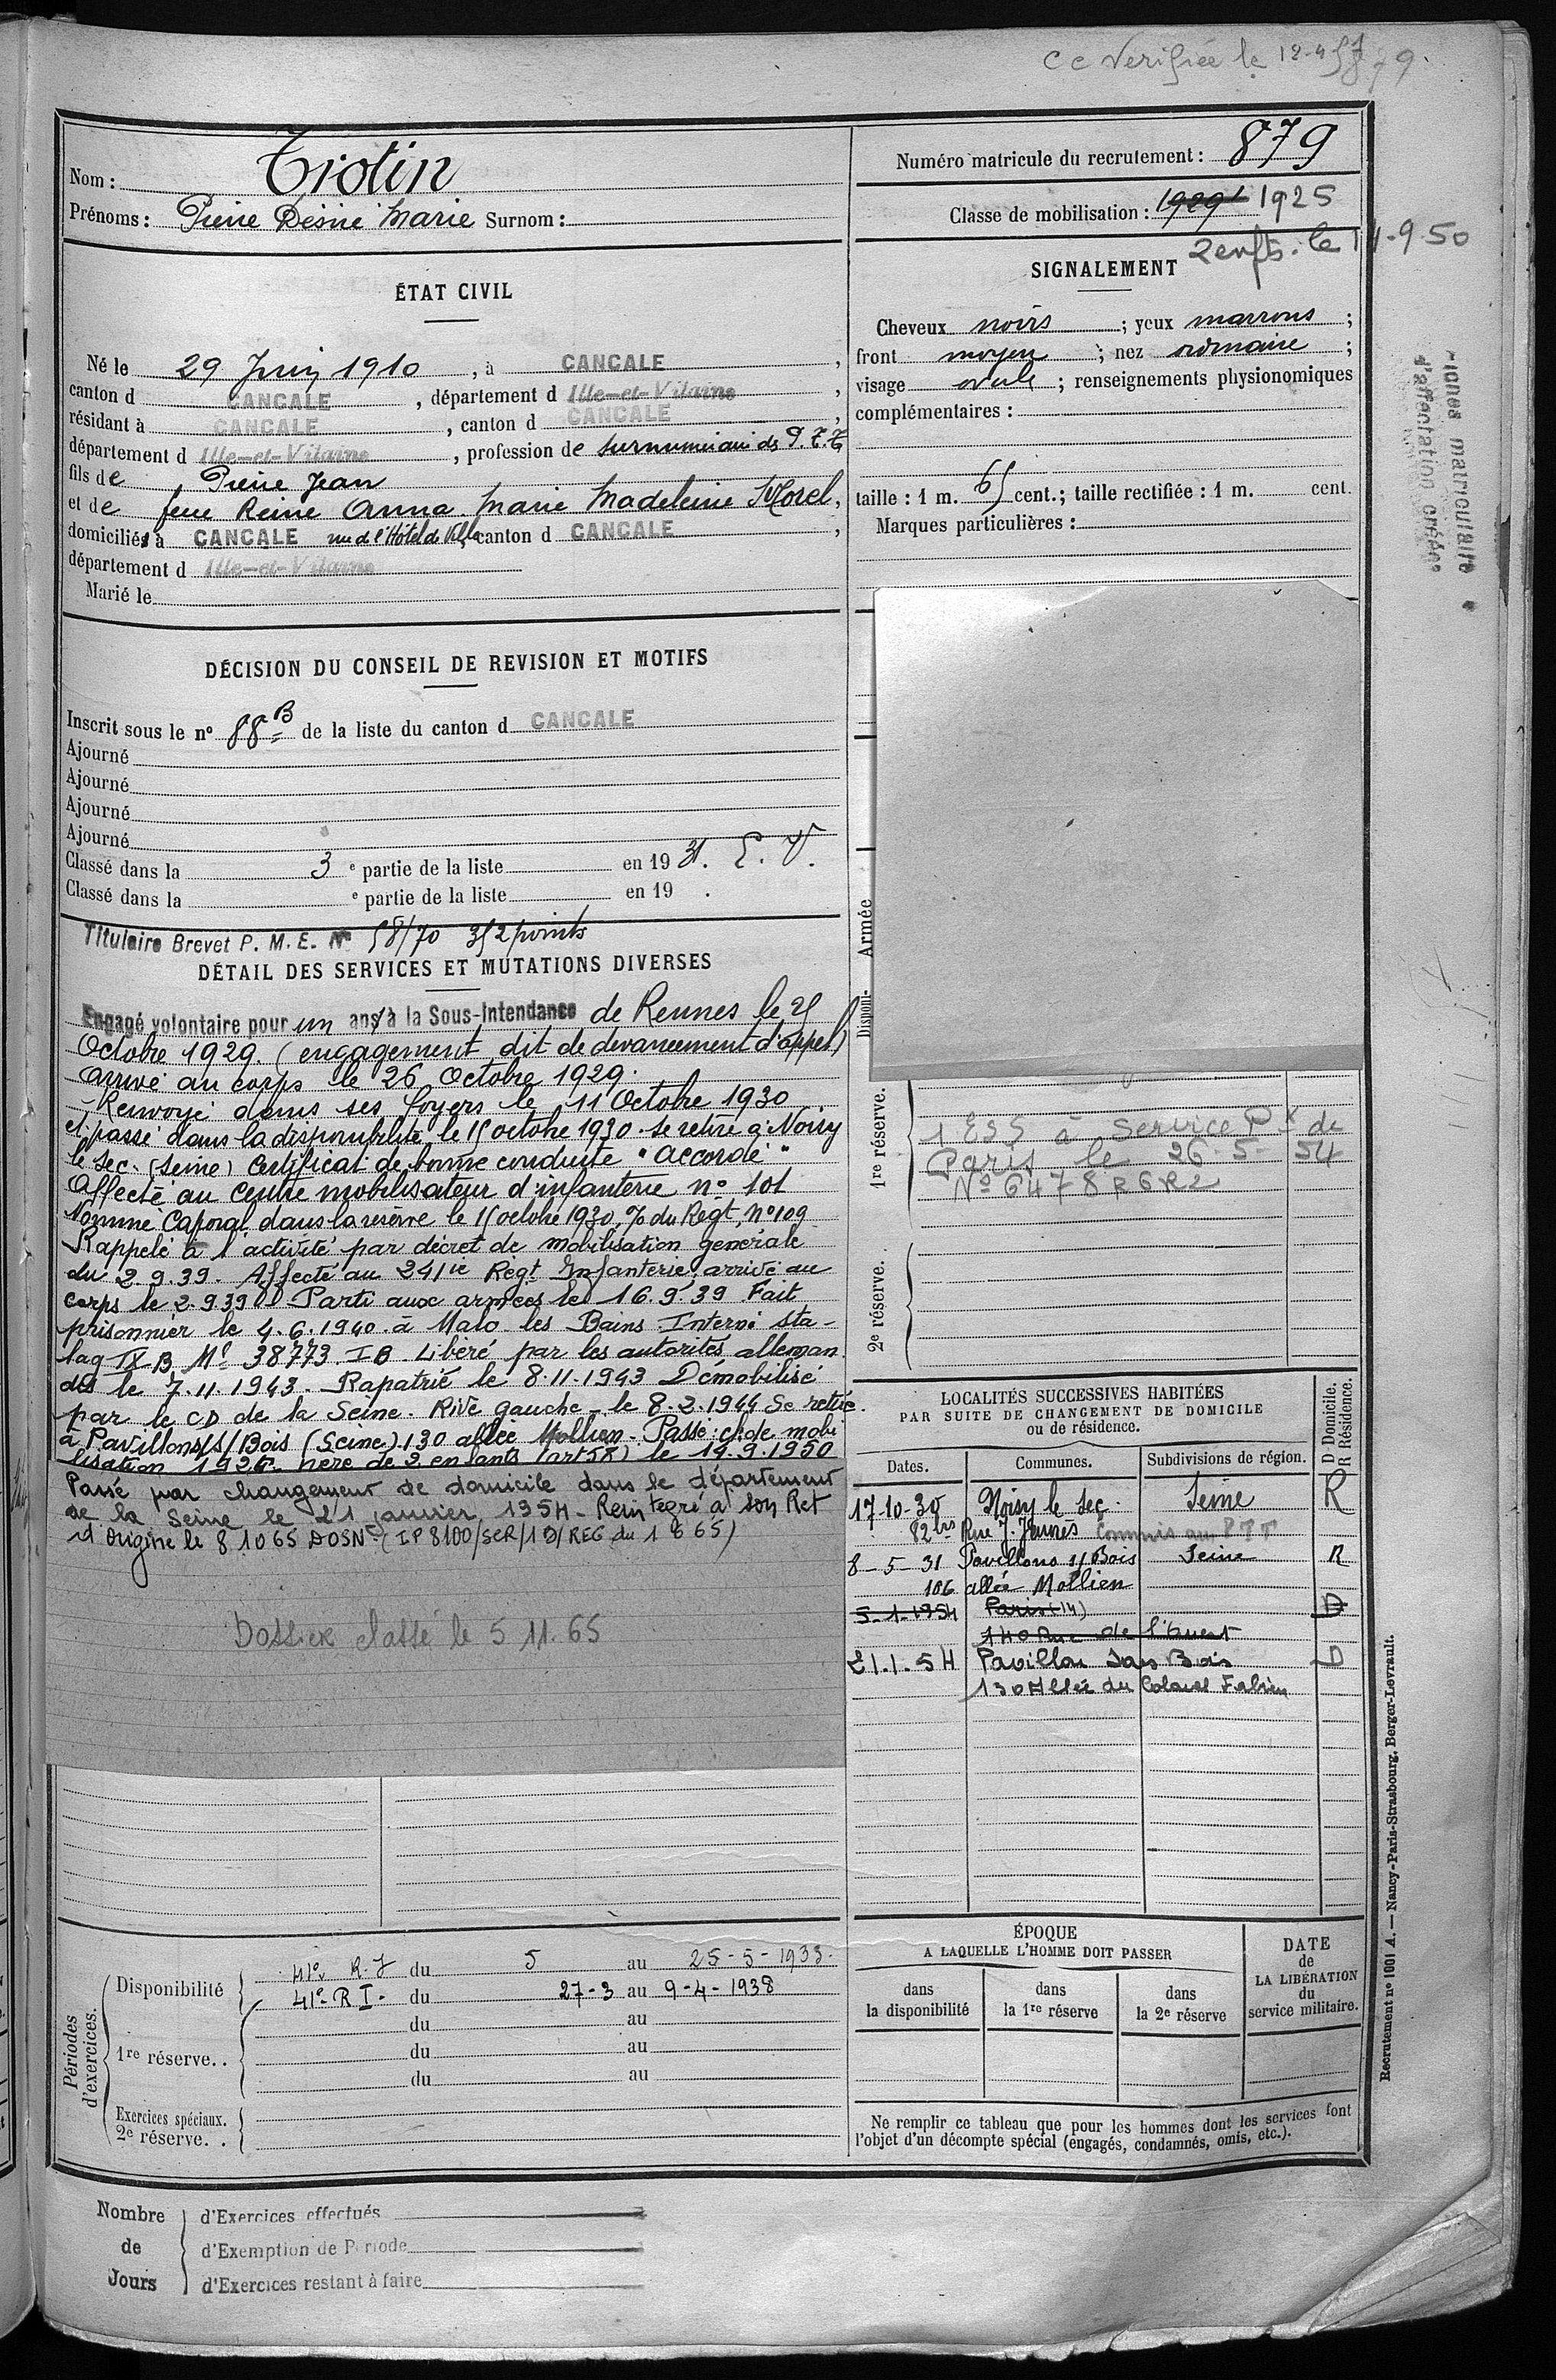 CC Verifiée le 12-4-57
Nom : Tiotin
Prénoms : Pierre Désiré Marie Surnom :
Numéro matricule du recrutement : 879
Classe de mobilisation : 1929 1925
2 enfts. le 14-9-50
ÉTAT CIVIL
Né le 29 Juin 1910, à CANCALE,
canton d CANCALE, département d Ille-et-Vilaine,
résidant à CANCALE, canton d CANCALE,
département d Ille-et-Vilaine, profession de surnuméraire des P.T.T.
fils de Pierre Jean
et de feue Reine Anna Marie Madeleine Morel,
domiciliés à CANCALE rue de l'Hôtel de Ville canton d CANCALE,
département d Ille-et-Vilaine
Marié le
SIGNALEMENT
Cheveux noirs ; yeux marrons ;
front moyen ; nez ordinaire ;
visage ovale ; renseignements physionomiques
complémentaires :
taille : 1 m. 65 cent. ; taille rectifiée : 1 m. cent.
Marques particulières :
matriculaire
d'affectation créées
DÉCISION DU CONSEIL DE REVISION ET MOTIFS
Inscrit sous le n° 88 B de la liste du canton d CANCALE
Ajourné
Ajourné
Ajourné
Ajourné
Classé dans la 3 e partie de la liste en 19 31. E. V.
Classé dans la e partie de la liste en 19 .
Titulaire Brevet P. M. E. N° 58/70 352 points
DÉTAIL DES SERVICES ET MUTATIONS DIVERSES
Engagé volontaire pour un ans à la Sous-Intendance de Rennes le 25
Octobre 1929. (engagement dit de devancement d'appel)
Arrivé au corps le 26 Octobre 1929.
Renvoyé dans ses foyers le 11 Octobre 1930
et passé dans la disponibilité le 15 octobre 1930. Se retire à Noisy
le Sec. (Seine) Certificat de bonne conduite "accordé"
Affecté au Centre mobilisateur d'infanterie n° 101
Nommé Caporal dans la réserve le 15 octobre 1930, % du Régt, n° 109
Rappelé à l'activité par décret de mobilisation générale
du 2.9.39. Affecté au 241ue Regt Infanterie, arrivé au
corps le 2.9.39 Parti aux armées le 16.9.39 Fait
prisonnier le 4.6.1940 à Malo les Bains Interné sta-
lag IX B Mle 38773. IB. Libéré par les autorités alleman
des le 7.11.1943. Rapatrié le 8.11.1943 Démobilisé
par le CD de la Seine. Rive gauche - le 8.2.1944 Se retire
à Pavillons/s/Bois (Seine) 130 allée Mollien - Passé cl. de mobi
lisation 1925 père de 2 enfants (art 58) le 14.9.1950
Passé par changement de domicile dans le département
de la Seine le 21 janvier 1954 - Reintégré à son Ret
d'origine le 8 10 65 DOSN (IP 8100/SCR/1D/REG du 1 6 65)
Dossier classé le 5 11. 65
Armée
Disponi-
1re réserve.
1 ESS à Service Px de
Paris le 26-5-54
N° 6478 RGR2
2e réserve.
LOCALITÉS SUCCESSIVES HABITÉES
PAR SUITE DE CHANGEMENT DE DOMICILE
ou de résidence.
D Domicile.
R Résidence.
Dates. Communes. Subdivisions de région.
17-10-30 Noisy le Sec. Seine R
82 bis Rue J. Jaurès Commis au PTT
8-5-31 Pavillons s/ Bois Seine R
106 allée Mollien
5-1-1954 Paris (14) D
140 Rue de l'Ouest
21.1.54 Pavillon Sous Bois D
130 Allée du Colonel Fabien
Périodes d'exercices.
Disponibilité
41e R.I du 5 au 25-5-1933.
41e R I. du 27-3 au 9-4-1938
du au
1re réserve. .
du au
du au
Exercices spéciaux.
2e réserve. .
ÉPOQUE
A LAQUELLE L'HOMME DOIT PASSER
dans la disponibilité
dans la 1re réserve
dans la 2e réserve
DATE de LA LIBÉRATION du service militaire.
Ne remplir ce tableau que pour les hommes dont les services font
l'objet d'un décompte spécial (engagés, condamnés, omis, etc.).
Recrutement n° 1001 A. — Nancy-Paris-Strasbourg, Berger-Levrault.
Nombre de Jours
d'Exercices effectués
d'Exemption de Période
d'Exercices restant à faire